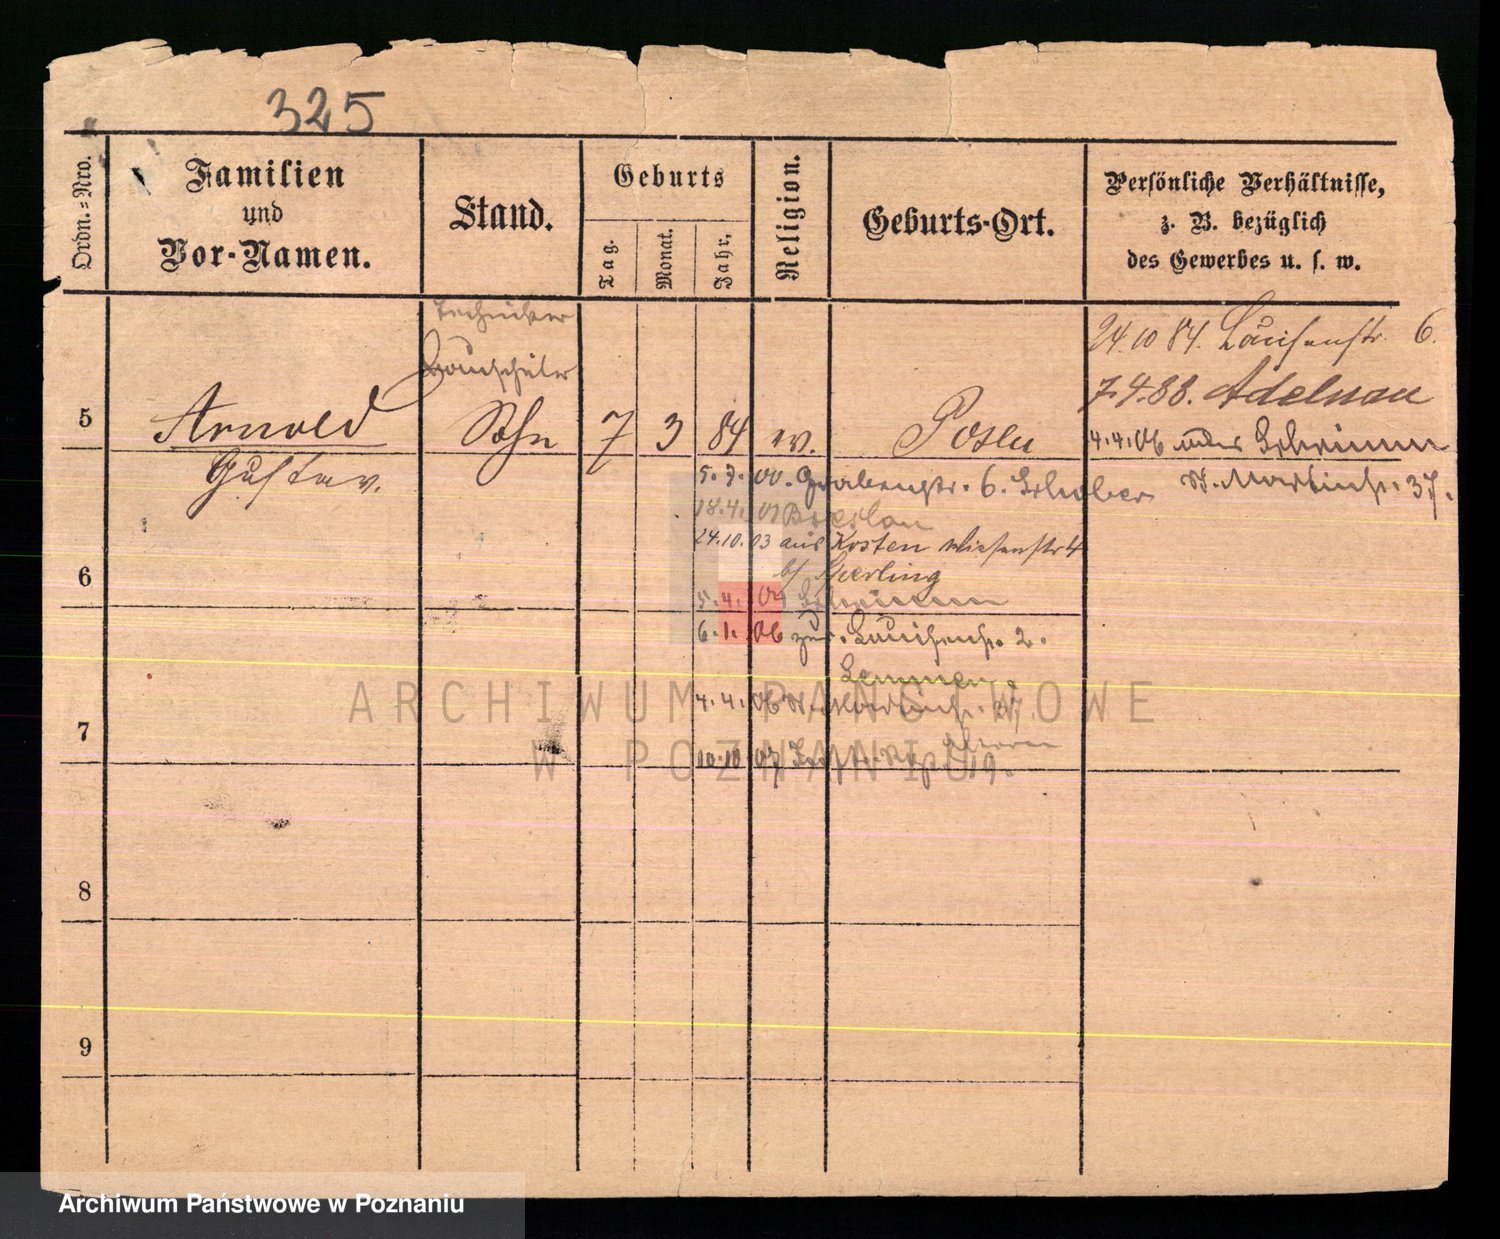 325
Ordn.-Nro.
Familien
und
Vor-Namen.
Stand.
Geburts
Tag.
Monat.
Jahr,
Religion.
Geburts-Ort.
Persönliche Verhältnisse,
z. B. bezüglich
des Gewerbes u. s. w.
Techniker
Bauschüler
24.10 84. Louisenstr. 6.
7.4.88. Adelnau
5 Arnold Sohn 7 3 84 ev. Posen
4.4.06 Schrimm
Gustav.
St. Martinstr. 37.
5.7.00. Grabenstr. 6. Schober
18.4. Breslau
24.10.03 aus Kosten Wiesenstr 4
b/ Geerling
6
5.4. Schrimm
6.1.06 zur. Louisenstr. 2.
4.4.06 St. Martinstr. 37.
7
10.10.07 19.
8
9
ARCHIWUM PAŃSTWOWE
W POZNANIU
Archiwum Państwowe w Poznaniu